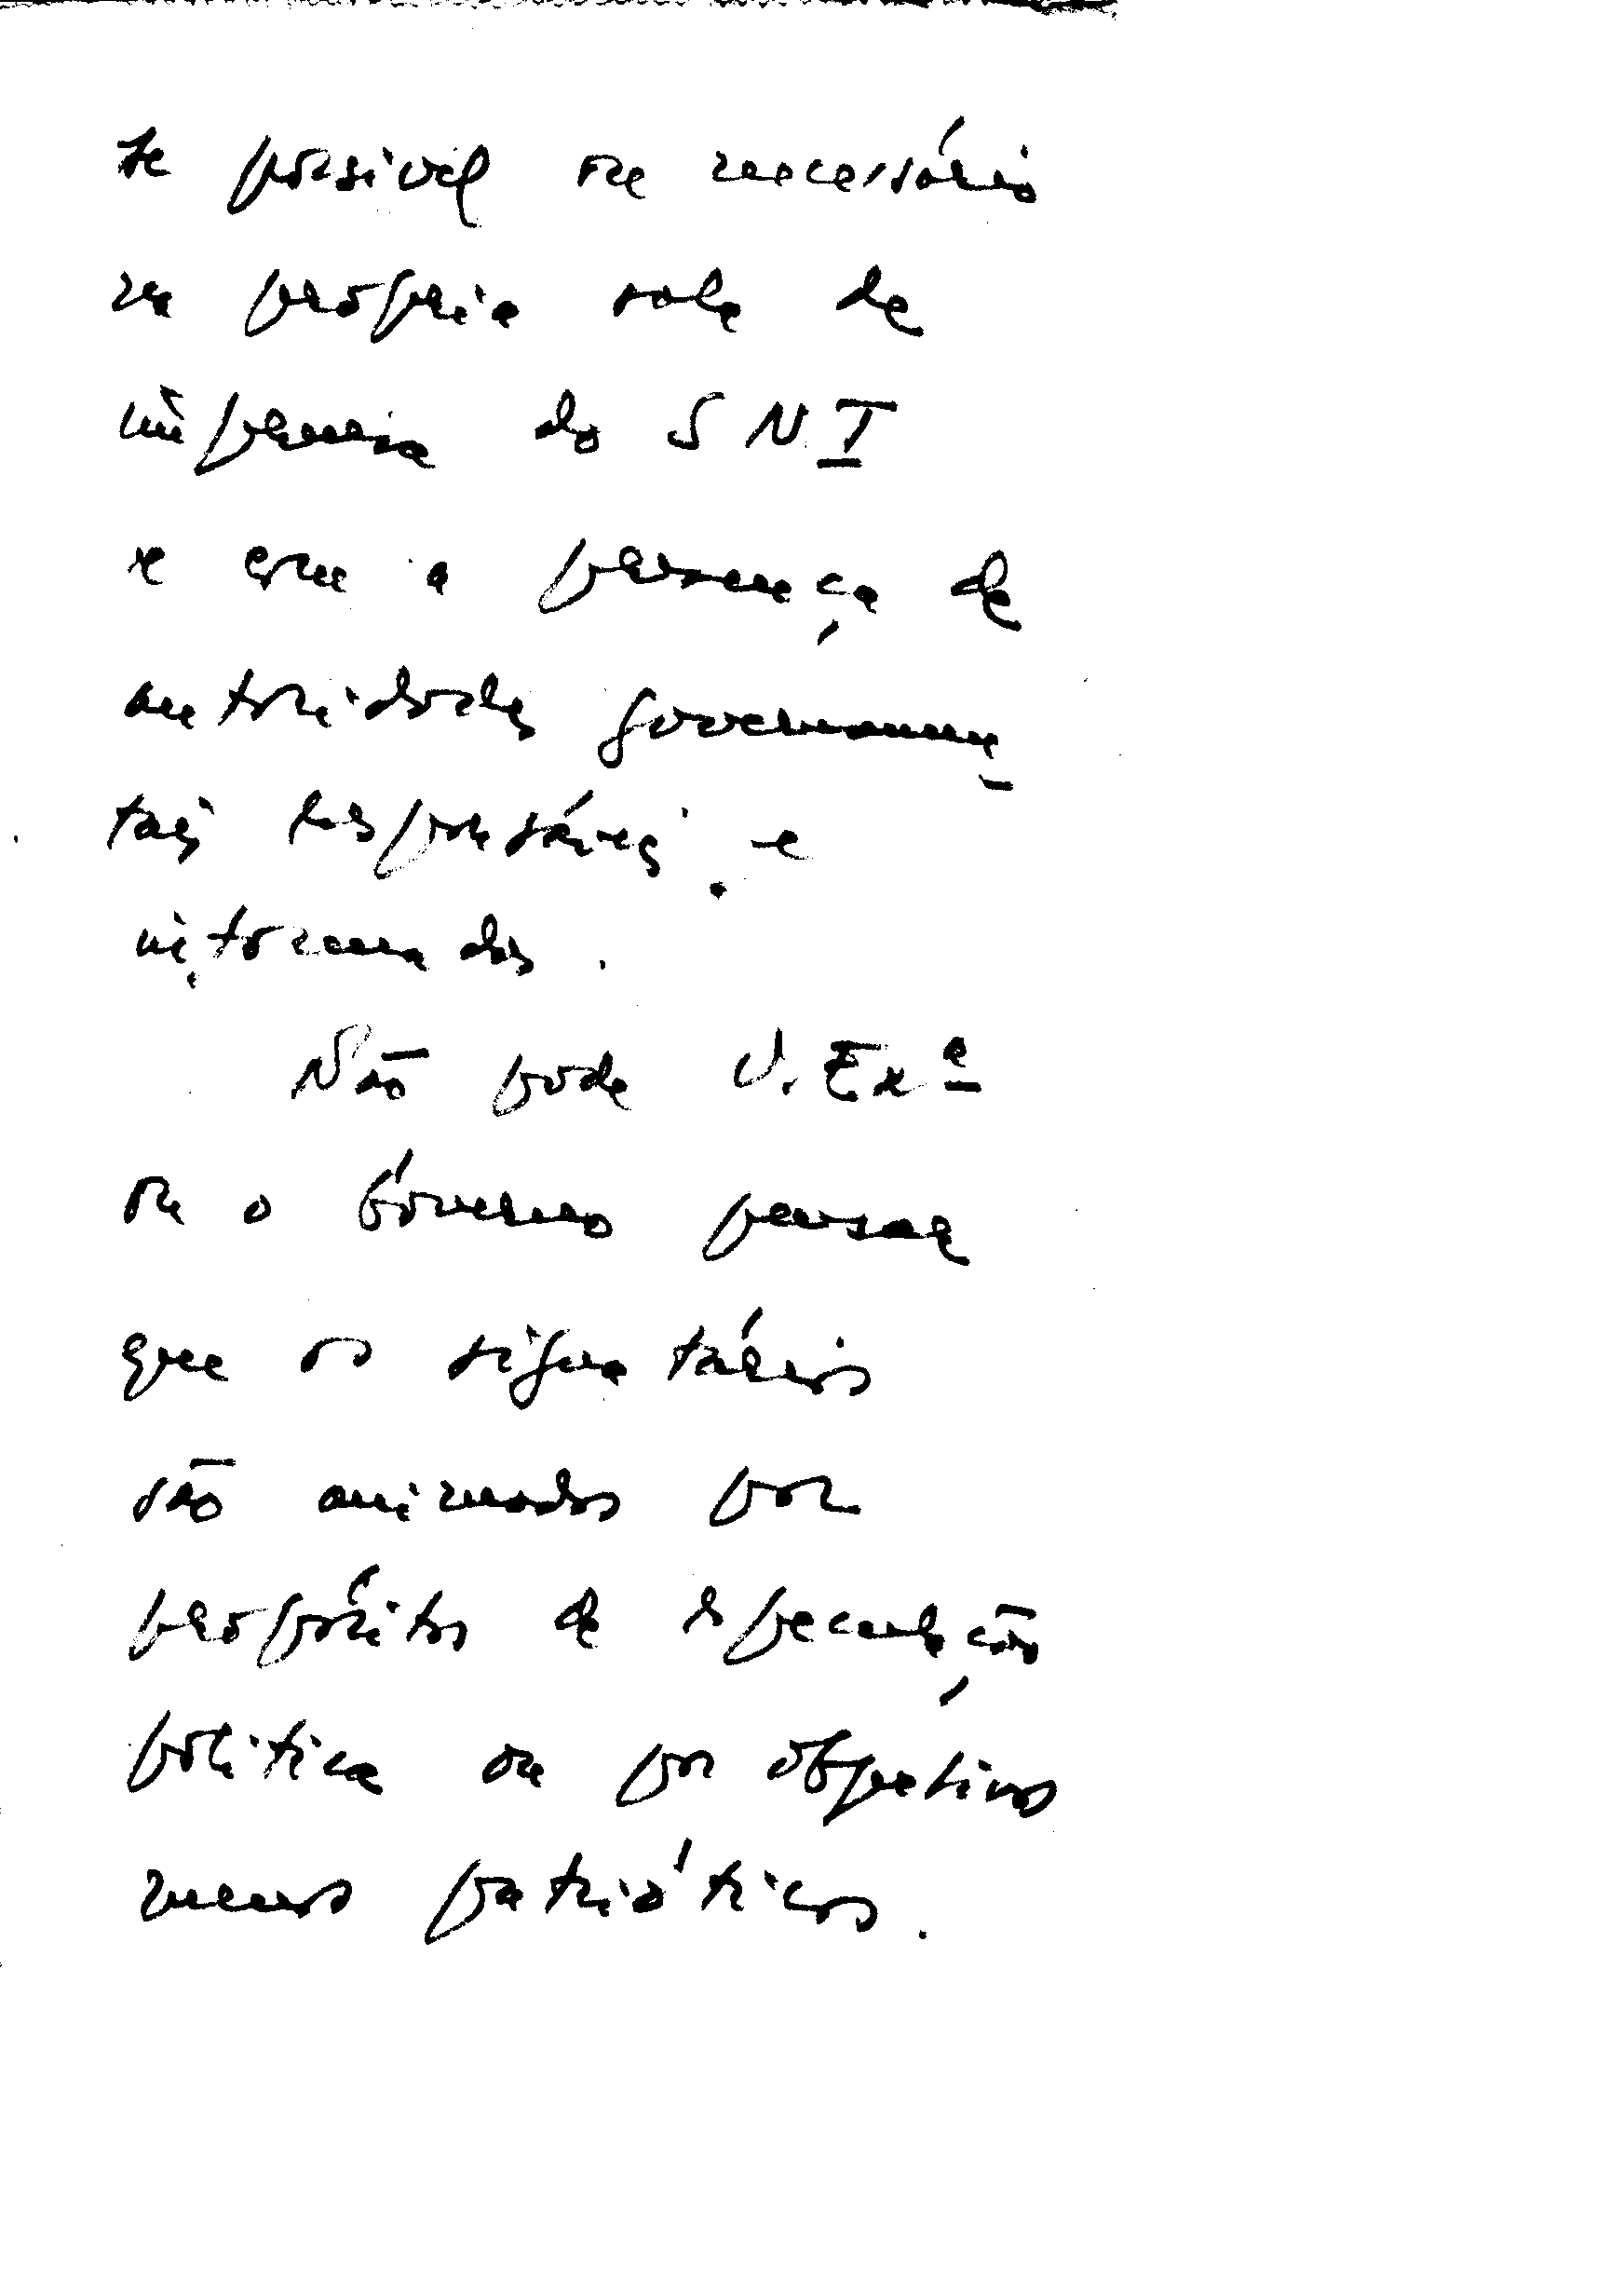 se possivel ou necessário
na própria sala de
imprensa do SNI
e com a presença de
autoridades governamen_
tais responsáveis e
informados.
Não pode V. Exª
ou o Govêrno pensar
que os signatários
são animados por
propósitos de especulação
politica ou por objetivos
menos patrióticos.